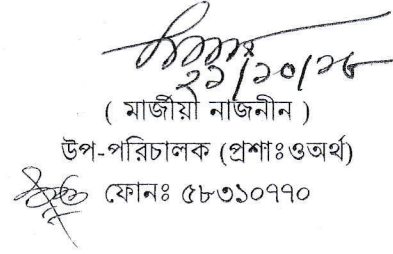 ২১/১০/১৮
( মার্জীয়া নাজনীন )
উপ-পরিচালক (প্রশাঃওঅর্থ)
ফোনঃ ৫৮৩১০৭৭০